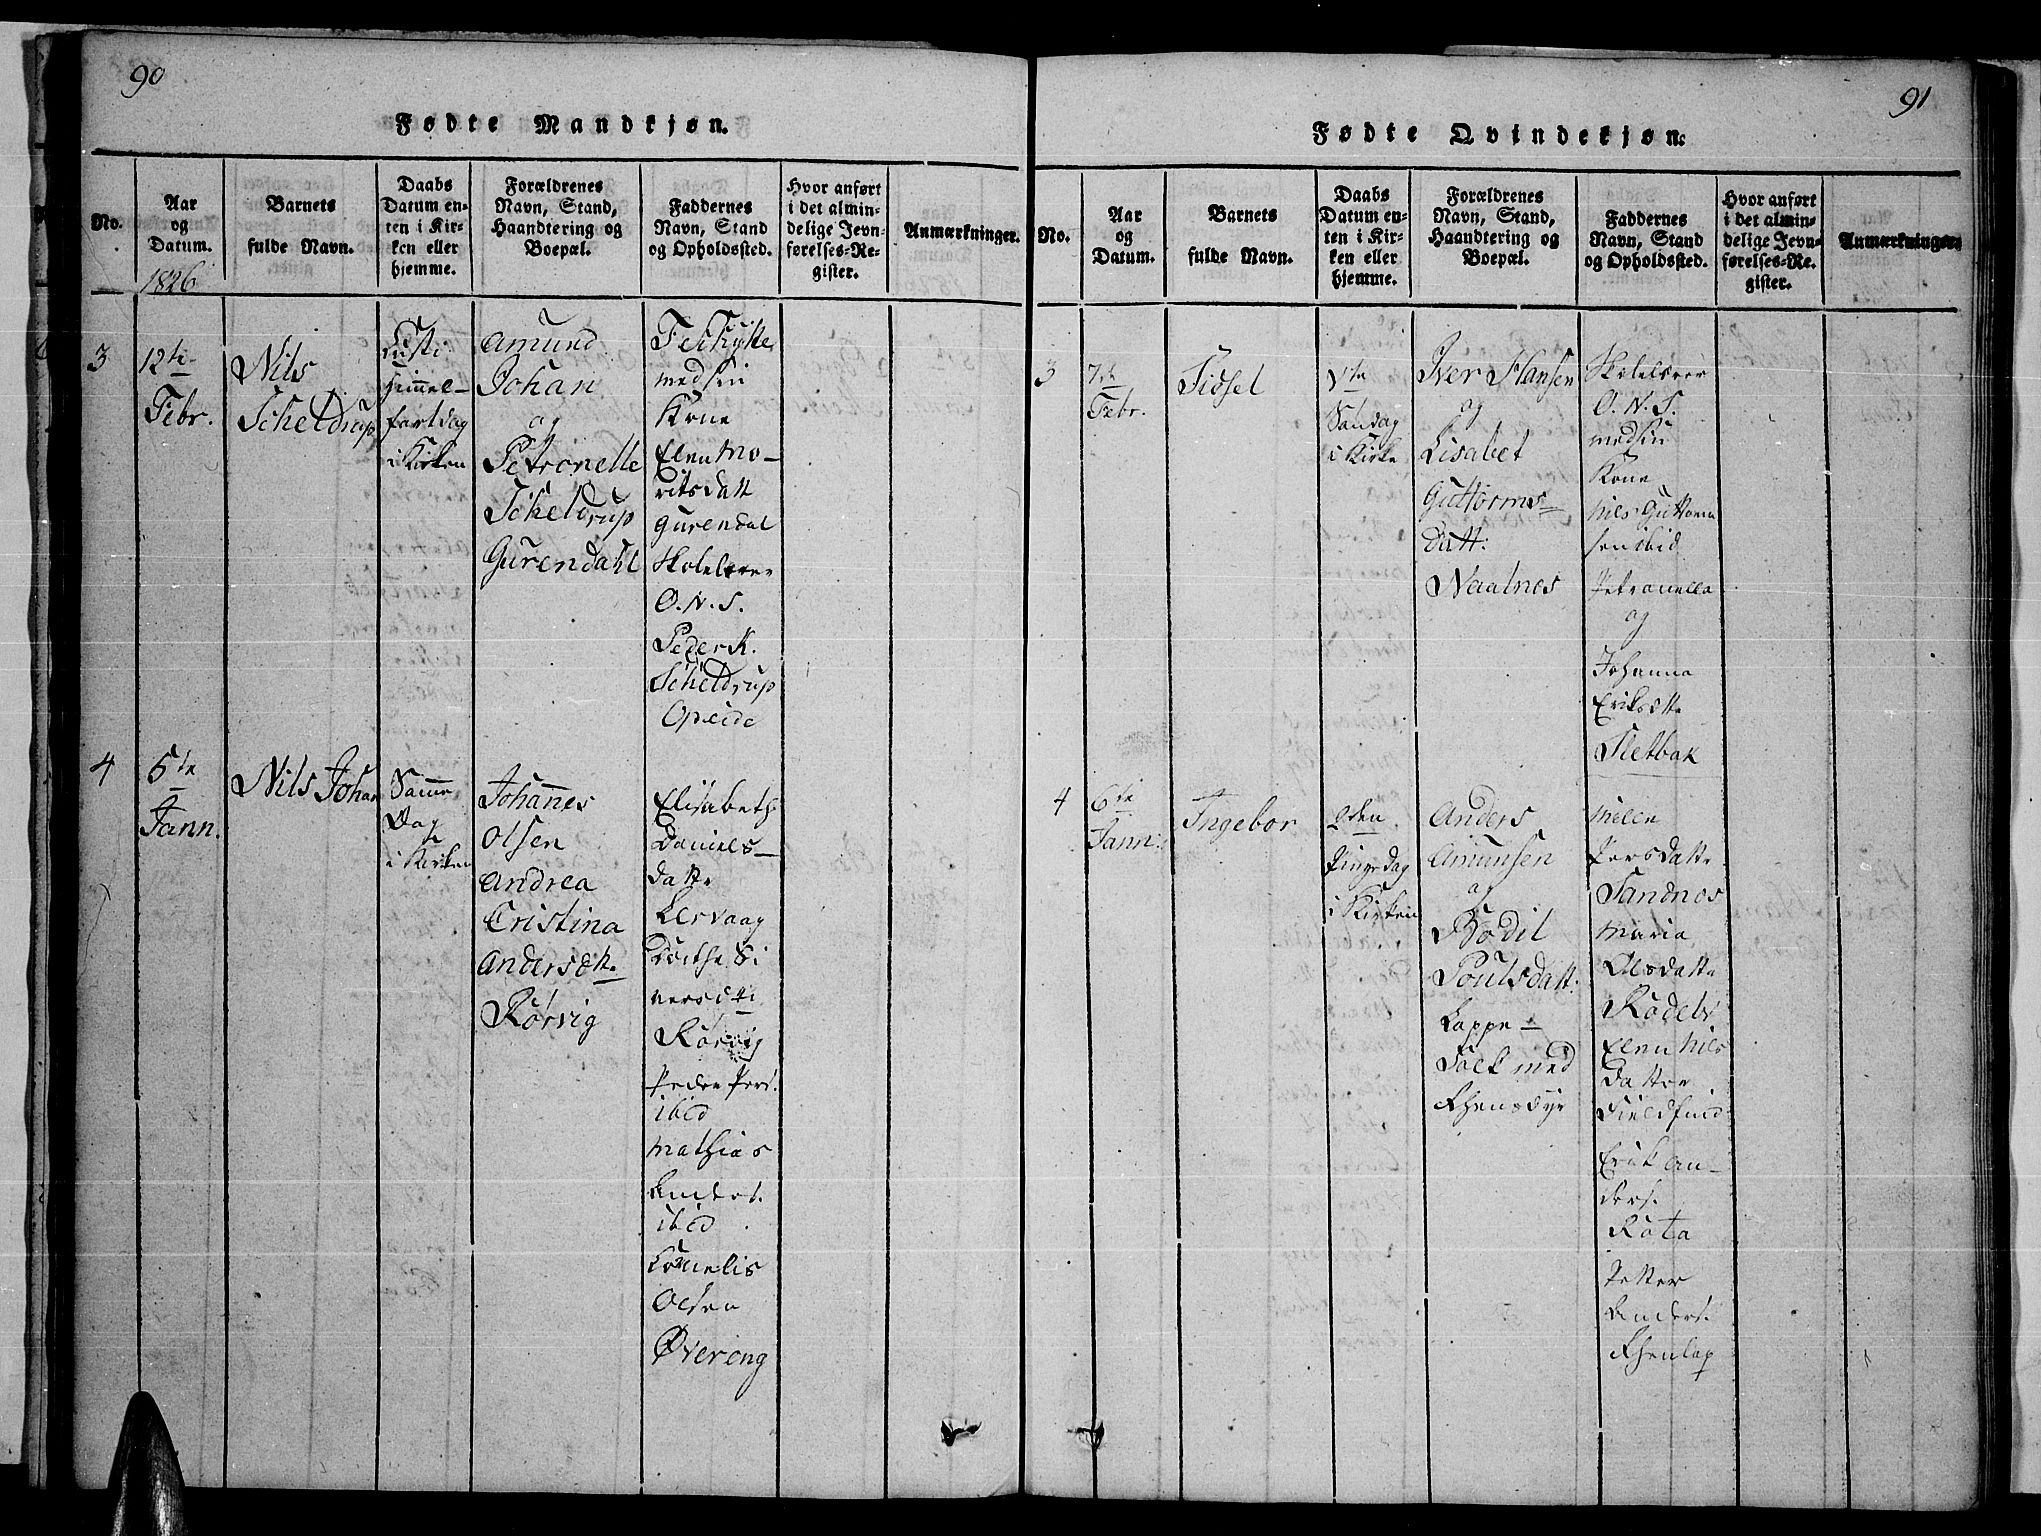 90
Fødte Mandkjøn.
No.
Aar
og
Datum.
1826
Barnets
fulde Navn.
Daabs
Datum en-
ten i Kir-
ken eller
hjemme.
Forældrenes
Navn, Stand,
Haandtering og
Boepæl.
Faddernes
Navn, Stand
og Opholdssted.
Hvor anført
i det almin-
delige Jevn-
førelses-Re-
gister.
Anmærkninger.
3
12te
Febr.
Nils
Scheldrup
Cristi
Himmel-
fartdag
i Kirken
Amund
Johan
og
Petronelle
Scheldrup
Gurendahl
med sin
Kone
Elen Mo-
ritsdatt
Gurendal
Skolelærer
O. N. S.
Peder K.
Scheldrup
Opeide
4
5te
Jann.
Nils Johan
Samme
Dag
i Kirken
Johannes
Olsen
Andrea
Cristina
Andersdtr.
Rørvig
Elisabeth
Daniels-
datter
Lervaag
Dorthe Si
versdtr
Rørvig
Peder Pers.
ibid
Mathias
Anders.
ibid
Kornelis
Olsen
Øvereng
91
Fødte Qvindekjøn.
No.
Aar
og
Datum.
Barnets
fulde Navn.
Daabs
Datum en-
ten i Kir-
ken eller
hjemme.
Forældrenes
Navn, Stand,
Haandtering og
Boepæl.
Faddernes
Navn, Stand
og Opholdssted.
Hvor anført
i det almin-
delige Jevn-
førelses-Re-
gister.
Anmærkninger
3
7de
Febr.
Sidsel
Vte
Søndag
i Kirke
Iver Hansen
og
Lisabet
Guttorms-
datt:
Naalnes
Skolelærer
O. N. S.
med sin
Kone
Nils Guttorm
sen ibid
Petronella
og
Johanna
Eriksdtr
Sletbak
4
6te
Jann:
Ingebor
2den
Pinsedag
i Kirken
Anders
Amunsen
og
Bodil
Poulsdatt:
Lappe-
Folk med
Rhensdyr
Persdatter
Sandnes
Maria
Olsdatter
Elen Nils
datter
Erik An-
ders.
Røta
Petter
Anders.
Rhenlap